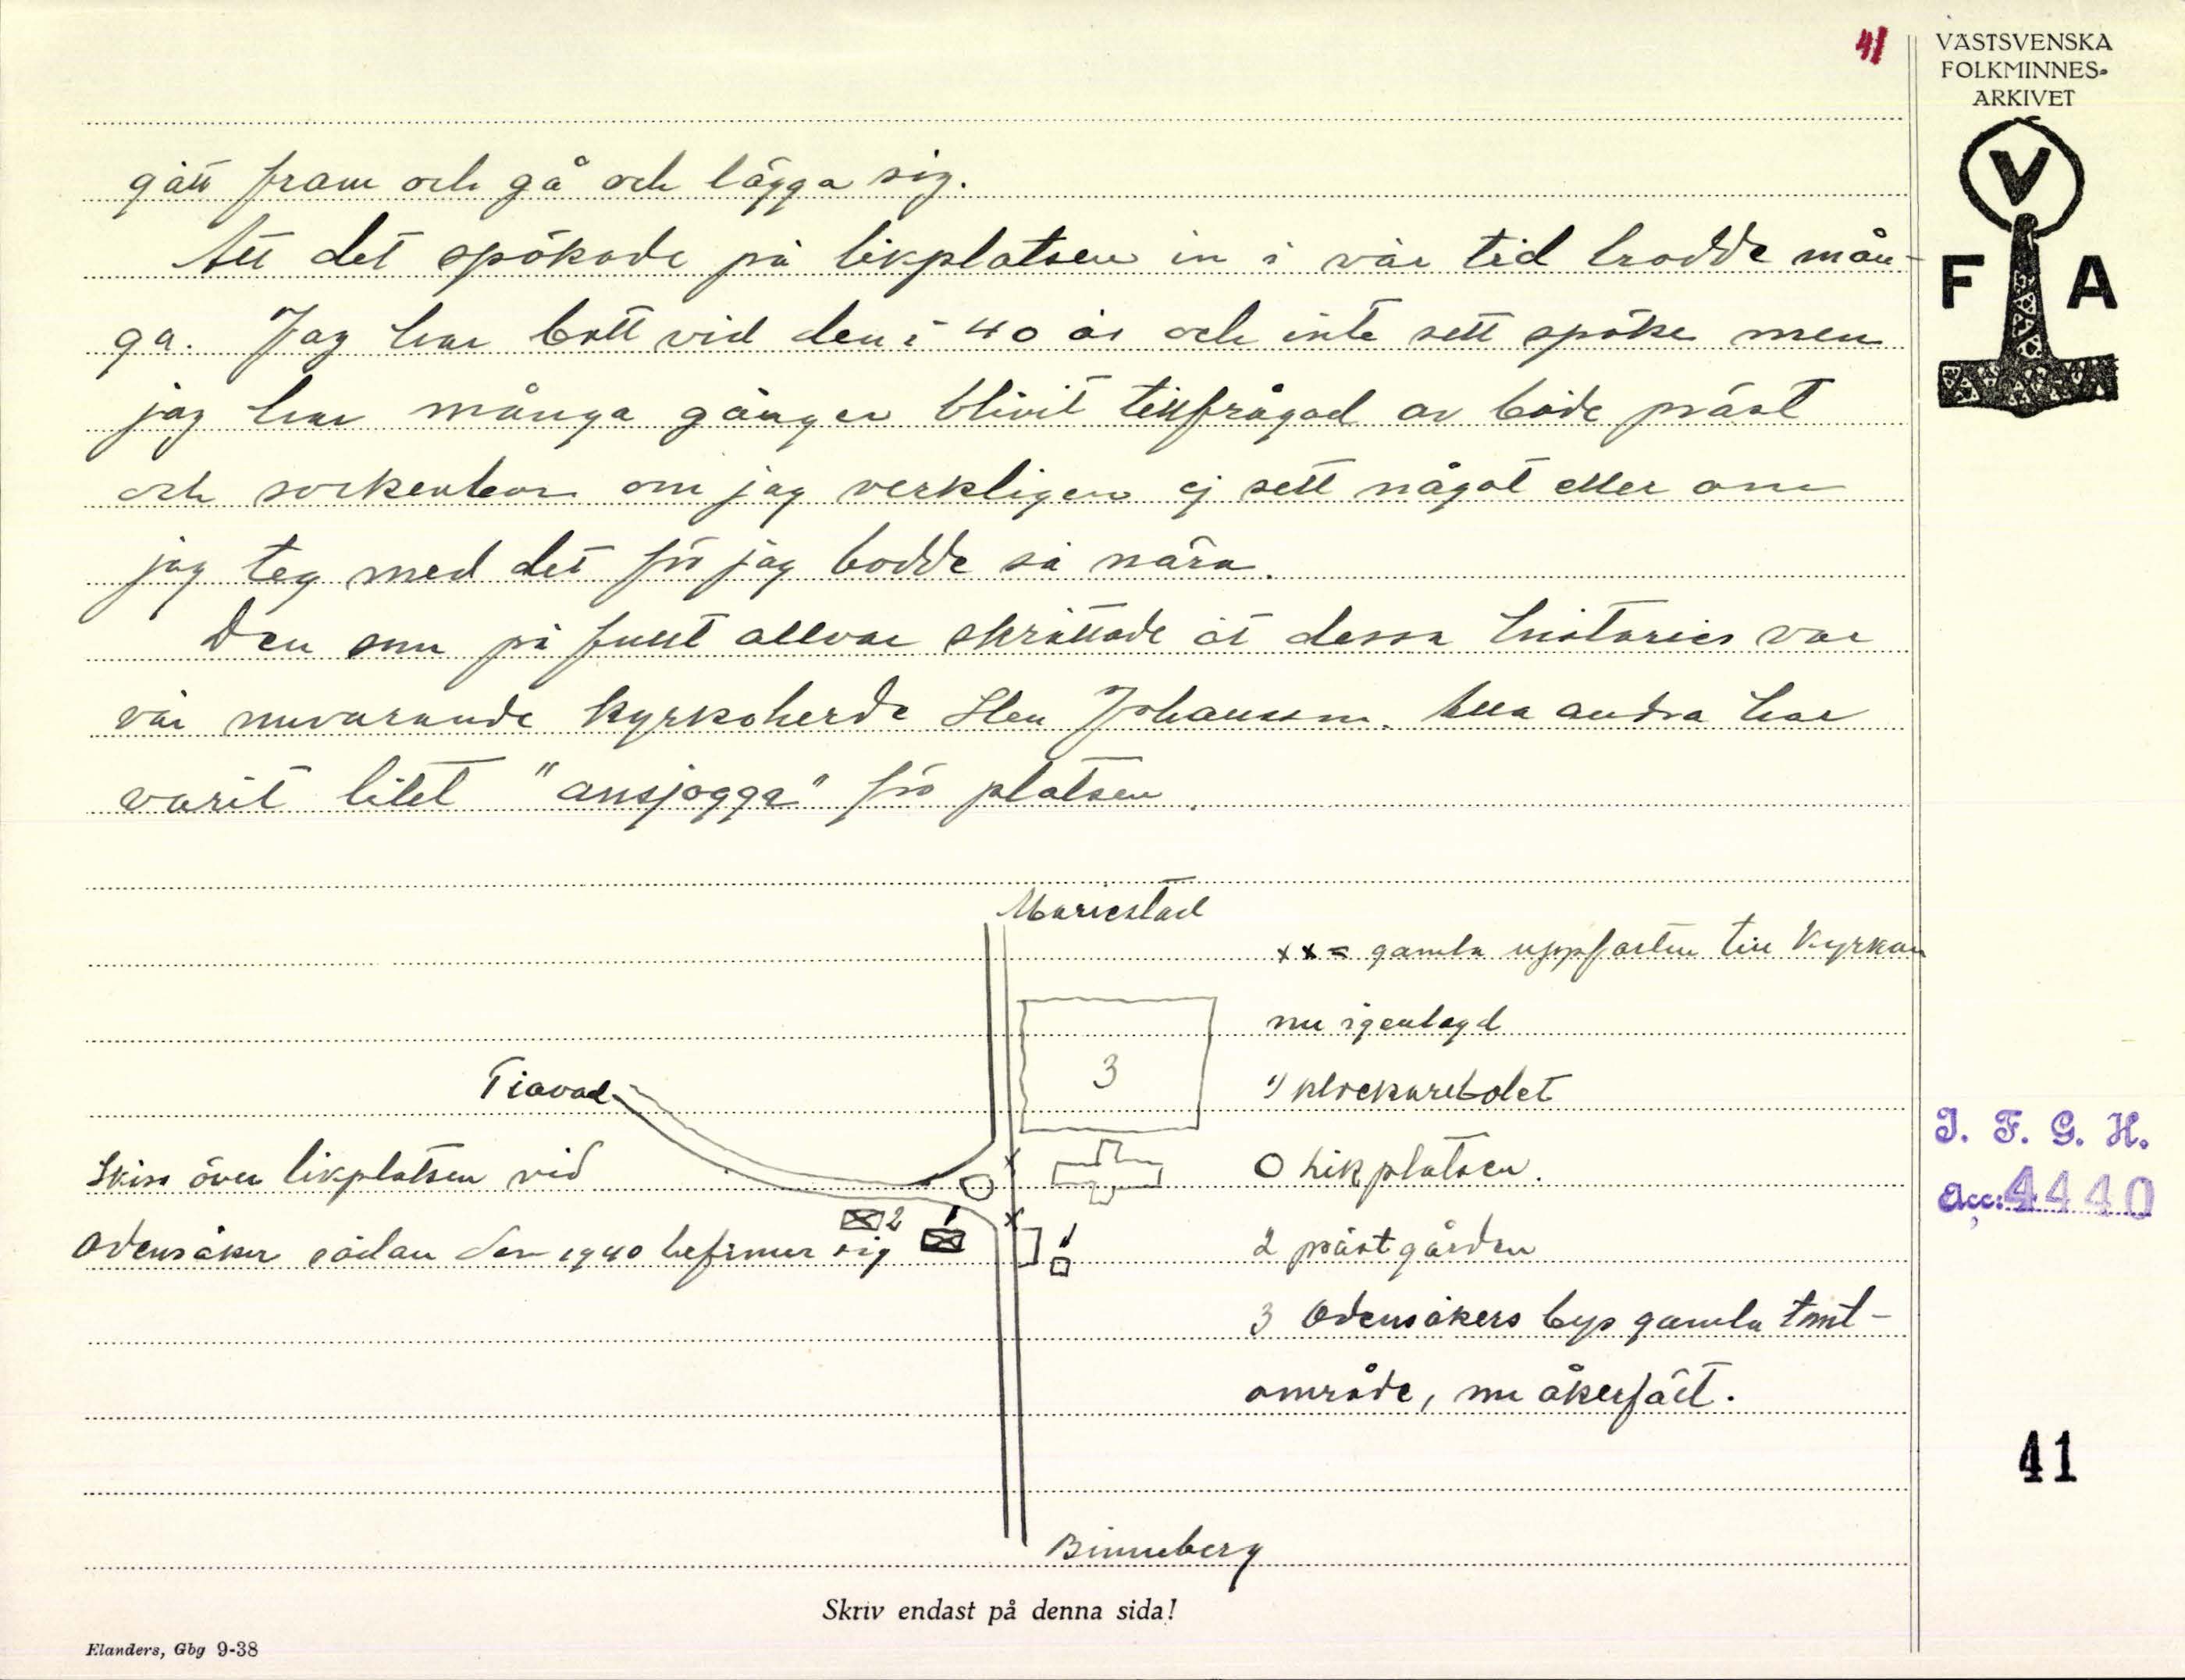 41
VÄSTSVENSKA
FOLKMINNES-
ARKIVET
V
F A
gått fram och gå och lägga sig.
Att det spökade på likplatsen in i vår tid trodde mån-
ga. Jag har bott vid den i 40 år och inte sett spöke men
jag har många gånger blivit tillfrågad av både präst
och sockenbor om jag verkligen ej sett något eller om
jag teg med det för jag bodde så nära.
Den som på fullt allvar skrattade åt dessa historier var
vår nuvarande kyrkoherde Sten Johansson. Alla andra har
varit litet "ansjogga" för platsen.
Mariestad
xx = gamla uppfarten till Kyrkan
nu igenlagd
3
Tiavad
1) klockarebolet
Skiss över likplatsen vid
O Likplatsen.
2
1
Odensåker sådan den 1940 befinner sig
1
2 prästgården
3 Odensåkers bys gamla tomt-
område, nu åkerfält.
Binneberg
J. F. G. H.
Acc: 4440
41
Skriv endast på denna sida!
Elanders, Gbg 9-38